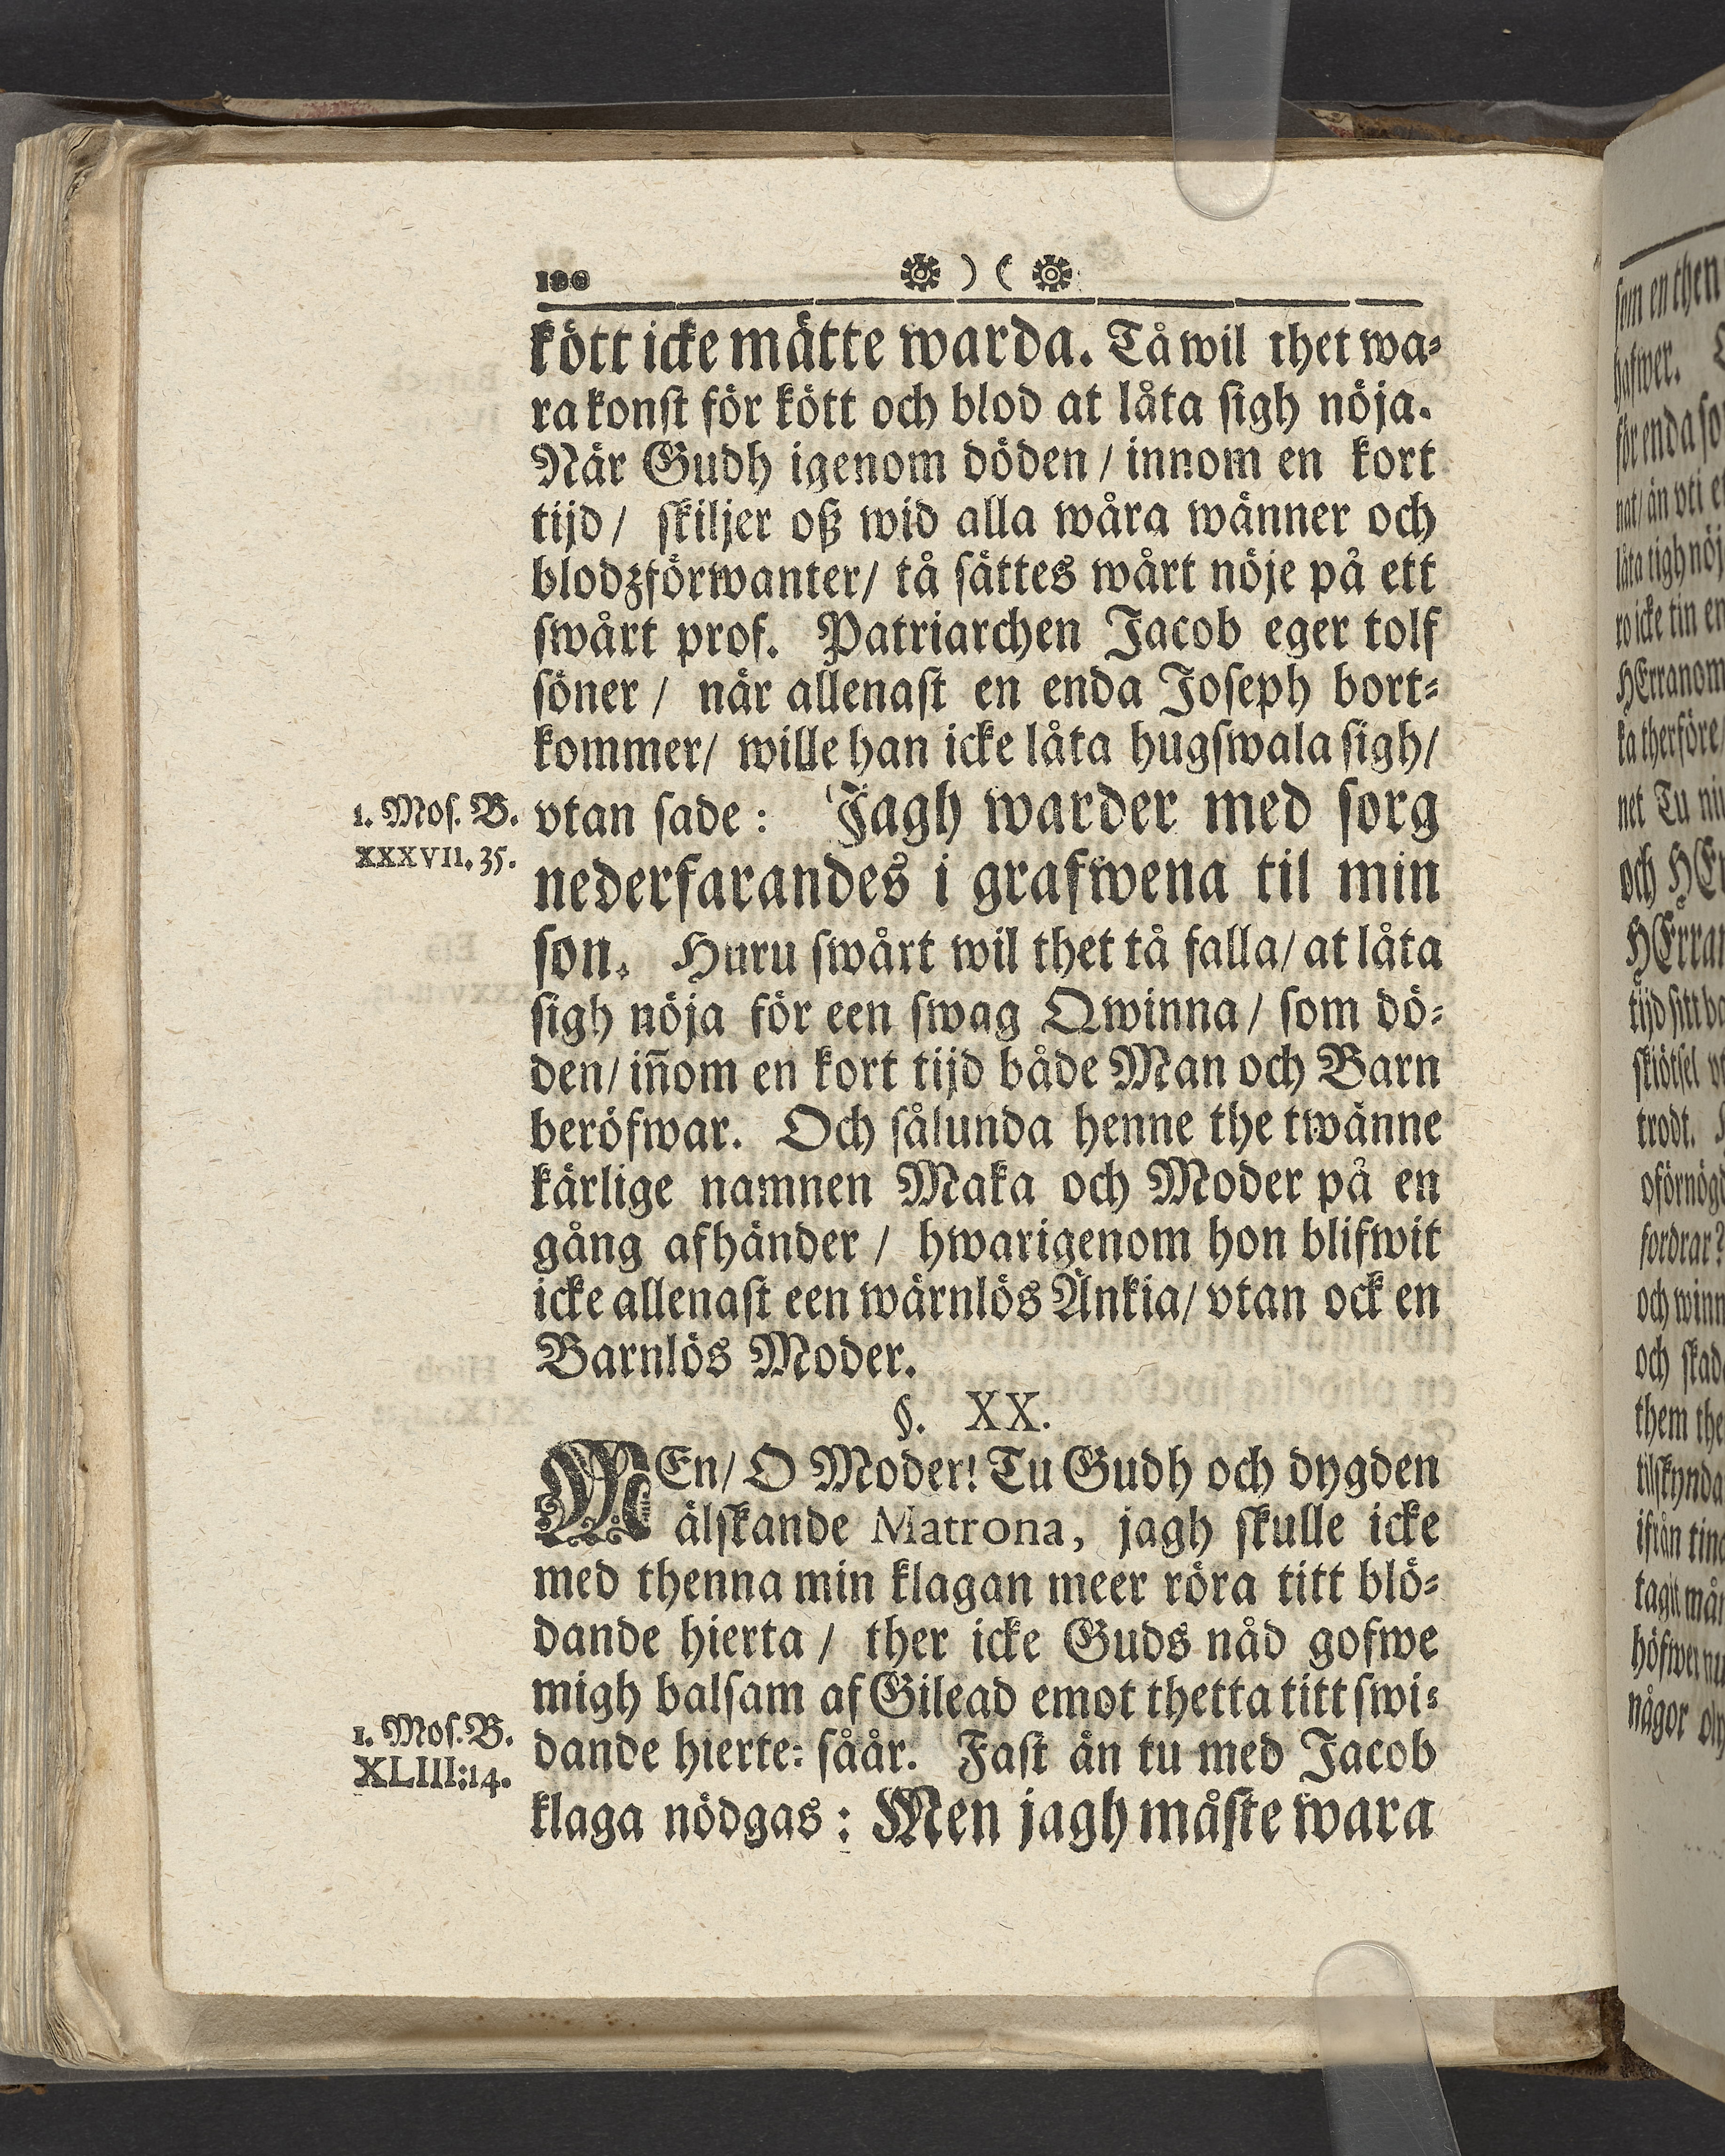 190
kött icke mätte warda. Tå wil thet wa⸗
ra konst för kött och blod at låta sigh nöja.
När Gudh igenom döden / innom en kort
tijd / skiljer oß wid alla wåra wänner och
blodzförwanter / tå sättes wårt nöje på ett
swårt prof. Patriarchen Jacob eger tolf
söner / när allenast en enda Joseph bort⸗
kommer / wille han icke låta hugswala sigh /
1. Mos. B.
XXXVII. 35.
vtan sade: Jagh warder med sorg
nederfarandes i grafwena til min
son. Huru swårt wil thet tå falla / at låta
sigh nöja för een swag Qwinna / som dö⸗
den / in̄om en kort tijd både Man och Barn
beröfwar. Och sålunda henne the twänne
kärlige namnen Maka och Moder på en
gång afhänder / hwarigenom hon blifwit
icke allenast een wärnlös Änkia / vtan ock en
Barnlös Moder.
§. XX.
MEn / O Moder! Tu Gudh och dygden
älskande Matrona, jagh skulle icke
med thenna min klagan meer röra titt blö⸗
dande hierta / ther icke Guds nåd gofwe
migh balsam af Gilead emot thetta titt swi⸗
1. Mos. B.
XLIII:14.
dande hierte⸗ såår. Fast än tu med Jacob
klaga nödgas: Men jagh måste wara
som en then
för enda so
låta sigh nöj
ro icke tin en
HErranom
ka therföre /
net Tu
och
tijd sitt
trodt.
fordrar?
och winn
och
them the
ifrån
någor